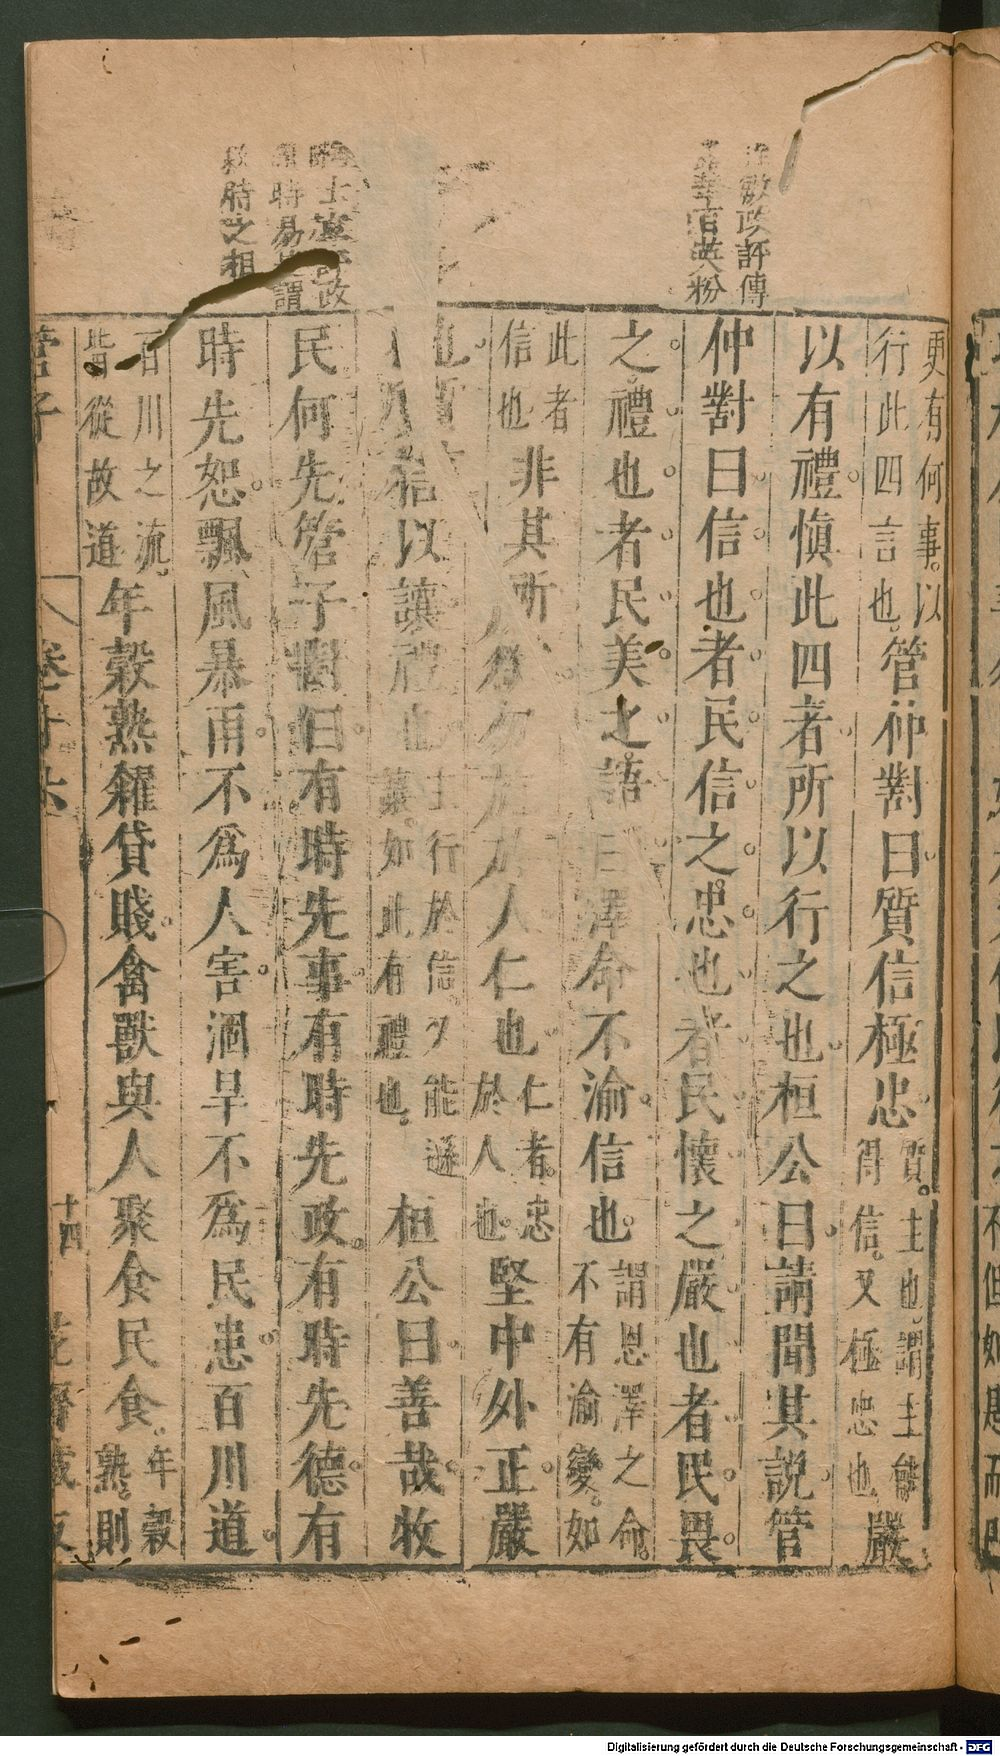 更有何事以
行此四言也管仲對曰質信極忠質主也謂主能得信又極忠也嚴
以有禮慎此四者所以行之也桓公曰請聞其說管
仲對曰信也者民信之忠也者民懷之嚴也者民畏
之禮也者民美之語曰澤命不渝信也謂恩澤之命不有渝變如
此者信也非其所欲勿施於人仁也仁者忠於人也堅中外正嚴
也質信以讓禮也主行於信又能遜讓如此有禮也桓公曰善哉牧
民何先管子對曰有時先事有時先政有時先德有
時先恕飄風暴雨不為人害涸旱不為民患百川道
百川之流皆從故道年穀熟糴貸賤禽獸與人聚食民食年穀熟則
政評傳
百英粉
時之相
管子
卷十六
十四
花齋藏板
Digitalisierung gefördert durch die Deutsche Forschungsgemeinschaft - DFG